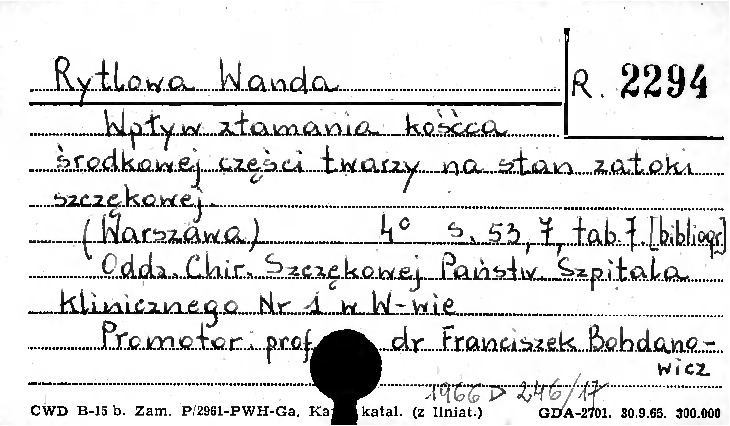 Rytlowa Wanda
R. 2294
Wpływ złamania kośćca
środkowej części twarzy na stan zatoki
szczękowej.
(Warszawa) 4° s. 53, 7, tab. 7. [bibliogr]
Oddz. Chir. Szczękowej Państw. Szpitala
Klinicznego Nr 1 w W-wie
Promotor: prof. dr Franciszek Bohdano-
wicz
1966 D 246/17
CWD B-15 b. Zam. P/2961-PWH-Ga. Ka katal. (z llniat.) GDA-2701. 30.9.65. 300.000